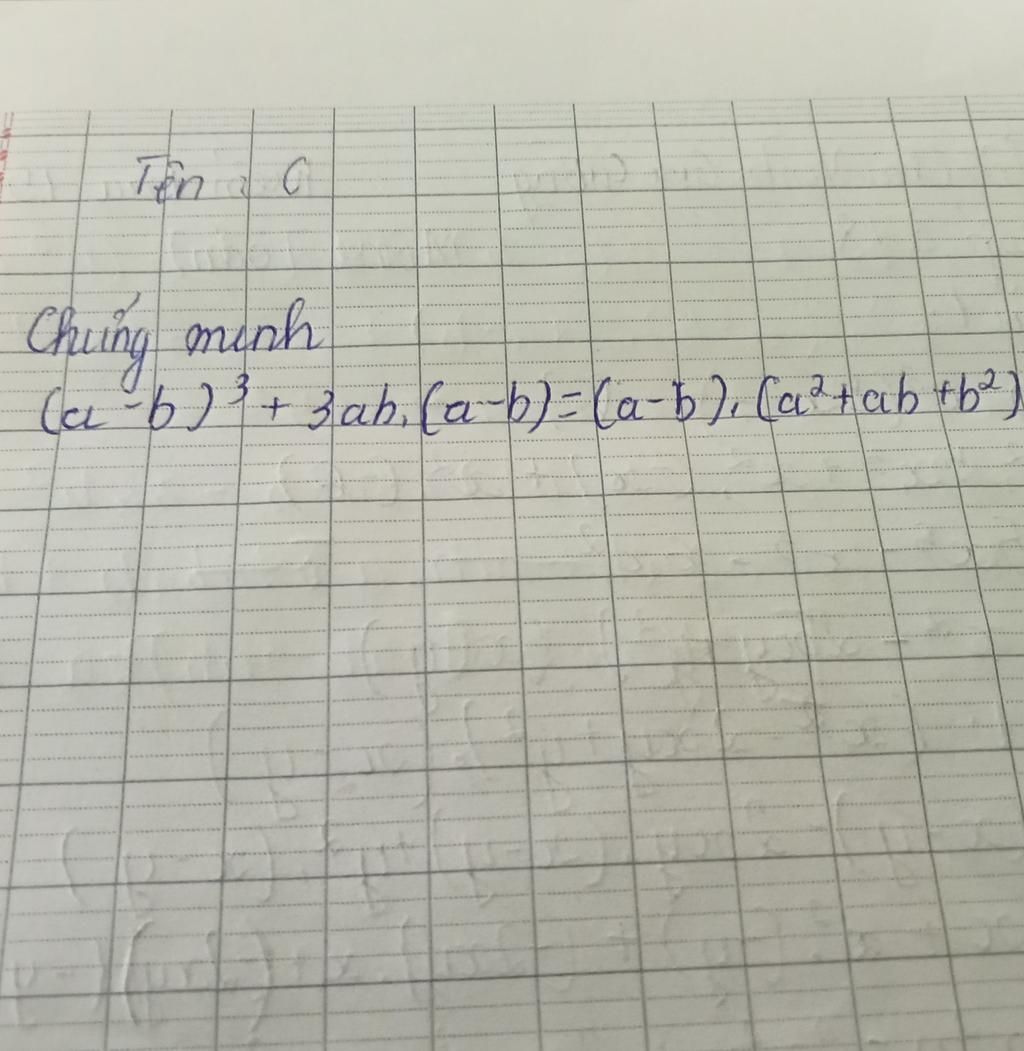 Tên : C
Chứng minh
(a-b)³ + 3ab.(a-b)=(a-b).(a²+ab+b²)